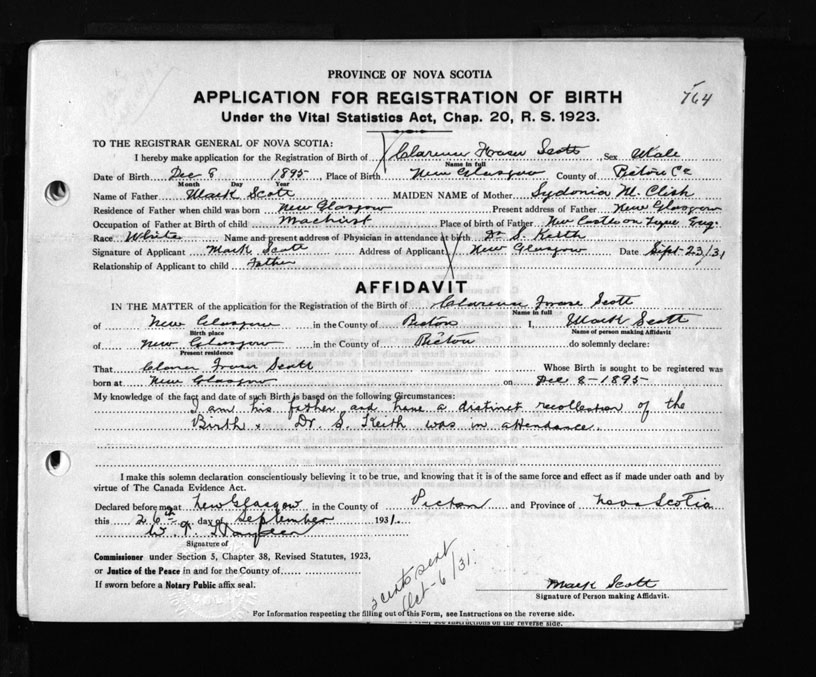 PROVINCE OF NOVA SCOTIA
APPLICATION FOR REGISTRATION OF BIRTH
764
Under the Vital Statistics Act, Chap. 20, R. S. 1923.
TO THE REGISTRAR GENERAL OF NOVA SCOTIA:
I hereby make application for the Registration of Birth of Clarence Fraser Scott Sex Male
Name in full
Date of Birth Dec 8 1895 Place of Birth New Glasgow County of Pictou Co
Month Day Year
Name of Father Mark Scott MAIDEN NAME of Mother Sydonia M. Clish
Residence of Father when child was born New Glasgow Present address of Father New Glasgow
Occupation of Father at Birth of child Machinist Place of birth of Father New Castle on Tyne Eng.
Race White Name and present address of Physician in attendance at birth Dr S. Keith
Signature of Applicant Mark Scott Address of Applicant New Glasgow Date Sept 23/31
Relationship of Applicant to child Father
AFFIDAVIT
IN THE MATTER of the application for the Registration of the Birth of Clarence Frase Scott
Name in full
of New Glasgow in the County of Pictou I, Mark Scott
Birth place Name of person making Affidavit
of New Glasgow in the County of Pictou do solemnly declare:
Present residence
That Fraser Scott Whose Birth is sought to be registered was
born at New Glasgow on Dec 8-1895
My knowledge of the fact and date of such Birth is based on the following Circumstances:
I am his father and have a distinct recollection of the
Birth. Dr. S. Keith was in attendance.
I make this solemn declaration conscientiously believing it to be true, and knowing that it is of the same force and effect as if made under oath and by
virtue of The Canada Evidence Act.
Declared before me at New Glasgow in the County of Pictou and Province of Nova Scotia
this 26th day of September 1931.
Signature of
Commissioner under Section 5, Chapter 38, Revised Statutes, 1923,
or Justice of the Peace in and for the County of
If sworn before a Notary Public affix seal.
sent Oct-6/31.
Mark Scott
Signature of Person making Affidavit.
For Information respecting the filling out of this Form, see Instructions on the reverse side.
see Instructions on the reverse side.